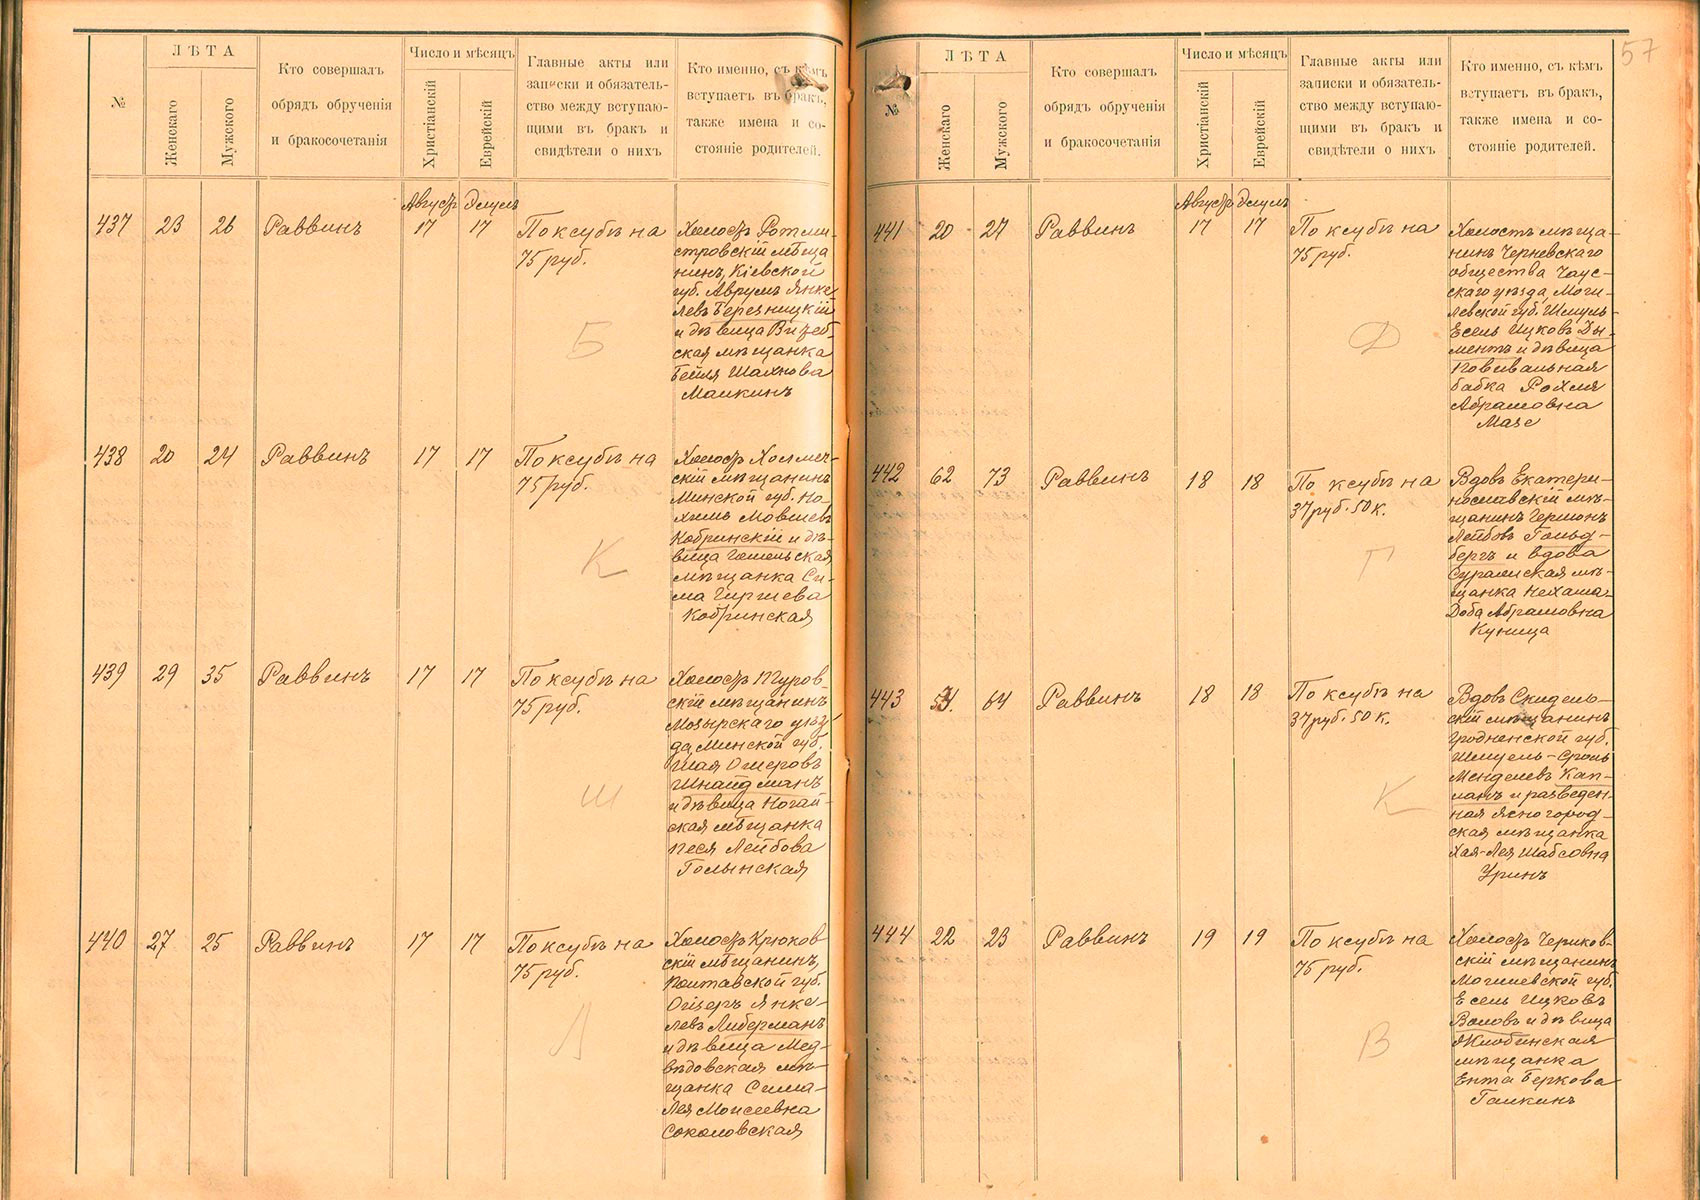 №
ЛѢТА
Женскаго
Мужского
Кто совершалъ
обрядъ обрученія
и бракосочетанія
Число и мѣсяцъ
Христіанскій
Еврейскій
Главные акты или
записки и обязатель-
ство между вступаю-
щими въ бракъ и
свидѣтели о нихъ
Кто именно, съ кѣмъ
вступаетъ въ бракъ,
также имена и со-
стояніе родителей.
Августъ Элулъ
437 23 26 Раввинъ 17 17 По ксубѣ на
75 руб.
Холостъ Ротми-
стровскій мѣща
нинъ, Кіевской
губ. Аврумъ Янке-
левъ Березницкій
и дѣвица Витеб-
ская мѣщанка
Бейля Шахнова
Малкинъ
Б
438 20 24 Раввинъ 17 17 По ксубѣ на
75 руб.
Холостъ Холмеч-
скій мѣщанинъ
Минской губ. Но-
химъ Мовшевъ
Кобринскій и дѣ-
вица Гомельская
мѣщанка Си-
ма Гиршева
Кобринская
К
439 29 35 Раввинъ 17 17 По ксубѣ на
75 руб.
Холостъ Туров-
скій мѣщанинъ
Мозырскаго уѣз-
да, Минской губ.
Шая Ошеровъ
Шнайдманъ
и дѣвица Ногай-
ская мѣщанка
Песя Лейбова
Голынская
Ш
440 27 25 Раввинъ 17 17 По ксубѣ на
75 руб.
Холостъ Крюков
скій мѣщанинъ,
Полтавской губ.
Ошеръ Янке-
левъ Либерманъ
и дѣвица Мед-
вѣдовская мѣ-
щанка Сима-
Лея Моисеевна
Соколовская
Л
57
№
ЛѢТА
Женскаго
Мужского
Кто совершалъ
обрядъ обрученія
и бракосочетанія
Число и мѣсяцъ
Христіанскій
Еврейскій
Главные акты или
записки и обязатель-
ство между вступаю-
щими въ бракъ и
свидѣтели о нихъ
Кто именно, съ кѣмъ
вступаетъ въ бракъ,
также имена и со-
стояніе родителей.
Августъ Элулъ
441 20 27 Раввинъ 17 17 По ксубѣ на
75 руб.
Холостъ мѣща-
нинъ Черневскаго
общества Чаус-
скаго уѣзда, Моги-
левской губ. Шмуль-
Есель Ицковъ Ды-
ментъ и дѣвица
повивальная
бабка Рохля
Абрамовна
Мазе
Д
442 62 73 Раввинъ 18 18 По ксубѣ на
37 руб. 50 к.
Вдовъ Екатери-
нославскій мѣ-
щанинъ Гершонъ
Лейбовъ Гольд-
бергъ и вдова
Суражская мѣ-
щанка Нехама-
Доба Абрамовна
Куница
Г
443 64 Раввинъ 18 18 По ксубѣ на
37 руб. 50 к.
Вдовъ Скидель-
скій мѣщанинъ
Гродненской губ.
Шмуель-Сроль
Менделевъ Кап-
ланъ и разведен-
ная Ясногород-
ская мѣщанка
Хая-Лея Шабсовна
Уринъ
К
444 22 23 Раввинъ 19 19 По ксубѣ на
75 руб.
Холостъ Чериков-
скій мѣщанинъ
Могилевской губ.
Есель Ицковъ
Воловъ и дѣвица
Жлобинская
мѣщанка
Ента Беркова
Галкинъ
В